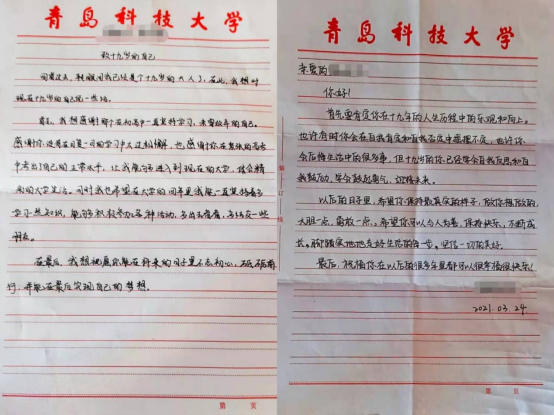 青岛科技大学
致十九岁的自己
回首过去,转眼间我已经是个十九岁的大人了,在此,我想对
现在十九岁的自己说一些话。
首先,我想感谢那个在初高中一直坚持学习,未曾放弃的自己。
感谢你
也感谢你在
考出了自己的正常水平,让我能够进入到现在的大学,体会精
彩的大学生活。同时我也希望在大学的四年里我能一直坚持着多
学习些知识,能够积极参加各种活动,多出去看看,多结交一些
朋友。
在最后,我想祝愿你能在将来的日子里不忘初心,砥砺前
行,并能在最后实现自己的梦想。
第 页
装订线
青岛科技大学
亲爱的
你好!
首先要肯定你在十九年的人生历程中的乐观和向上。
也许有时你会在自我肯定和自我否定中摇摆不定,也许你
会后悔生活中的很多事,但十九的你已经学会自我反思和自
我鼓励,学会鼓起勇气,迎接未来。
以后的日子里,希望你保持最真实的样子,做你想做的,
大胆一点,勇敢一点。希望你可以与人为善,保持快乐,不断成
长。脚踏实地地走好生活的每一步。坚信一切的美好。
最后,祝福你在以后的很多年里都可以很幸福很快乐!
2021.03.24
第 页